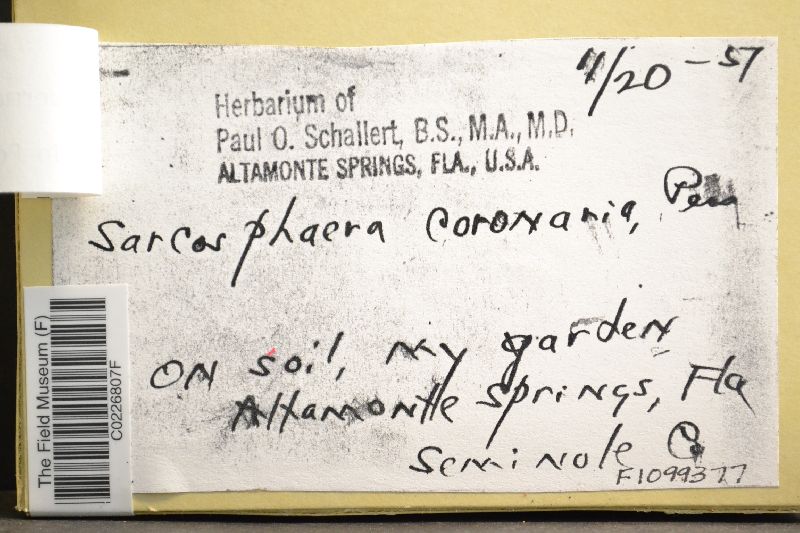 11/20-57
Herbarium of
Paul O. Schallert, B.S., M.A., M.D.
ALTAMONTE SPRINGS, FLA., U.S.A.
Sarcosphaera coronaria,
ON soil, my garden
Altamonte Springs, Fla
Seminole Co
F1099377
The Field Museum (F)
C0226807F